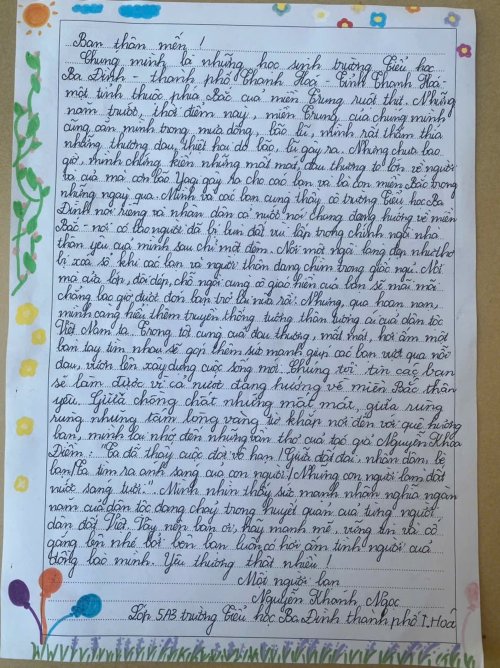 Bạn thân mến !
Chúng mình là những học sinh trường Tiểu học
Ba Đình - thành phố Thanh Hoá - Tỉnh Thanh Hoá -
một tỉnh thuộc phía Bắc của miền Trung ruột thịt. Những
năm trước, thời điểm này, miền Trung của chúng mình
cũng oằn mình trong mưa dông, bão lũ, mình rất thấm thía
những thương đau, thiệt hại do bão, lũ gây ra. Nhưng chưa bao
giờ, mình chứng kiến những mất mát, đau thương to lớn về người
và của mà cơn bão Yagi gây ra cho các bạn và bà con miền Bắc trong
những ngày qua. Mình và các bạn cùng thầy cô trường Tiểu học Ba
Đình nói riêng và nhân dân cả nước nói chung đang hướng về miền
Bắc - nơi có bao người đã bị bùn đất vùi lấp trong chính ngôi nhà
thân yêu của mình sau chỉ một đêm. Nơi một ngôi làng đẹp như thơ
bị xoá sổ khi các bạn và người thân đang chìm trong giấc ngủ. Nơi
mà cửa lớp, đôi dép, chỗ ngồi cùng cô giáo hiền của bạn sẽ mãi mãi
chẳng bao giờ được đón bạn trở lại nữa rồi. Nhưng, qua hoạn nạn,
mình càng hiểu thêm truyền thống tương thân tương ái của dân tộc
Việt Nam ta. Trong tột cùng của đau thương, mất mát, hơi ấm một
bàn tay tìm nhau sẽ góp thêm sức mạnh giúp các bạn vượt qua nỗi
đau, vươn lên xây dựng cuộc sống mới. Chúng tôi tin các bạn
sẽ làm được vì cả nước đang hướng về miền Bắc thân
yêu. Giữa chồng chất những mất mát, giữa rưng
rưng những tấm lòng vàng từ khắp nơi đến với quê hương
bạn, mình lại nhớ đến những vần thơ của tác giả Nguyễn Khoa
Điềm : "Ta đã thấy cuộc đời vô hạn / Giữa đất đai, nhân dân, bè
bạn / Ta tìm ra ánh sáng của con người / Những con người làm đất
nước sáng tươi." Mình nhìn thấy sức mạnh nhân nghĩa ngàn
năm của dân tộc đang chảy trong huyết quản của từng người
dân đất Việt. Vậy nên bạn ơi, hãy mạnh mẽ, vững tin và cố
gắng lên nhé bởi bên bạn luôn có hơi ấm tình người của
đồng bào mình. Yêu thương thật nhiều !
Một người bạn
Nguyễn Khánh Ngọc
Lớp 5A3 trường Tiểu học Ba Đình thành phố T.Hoá